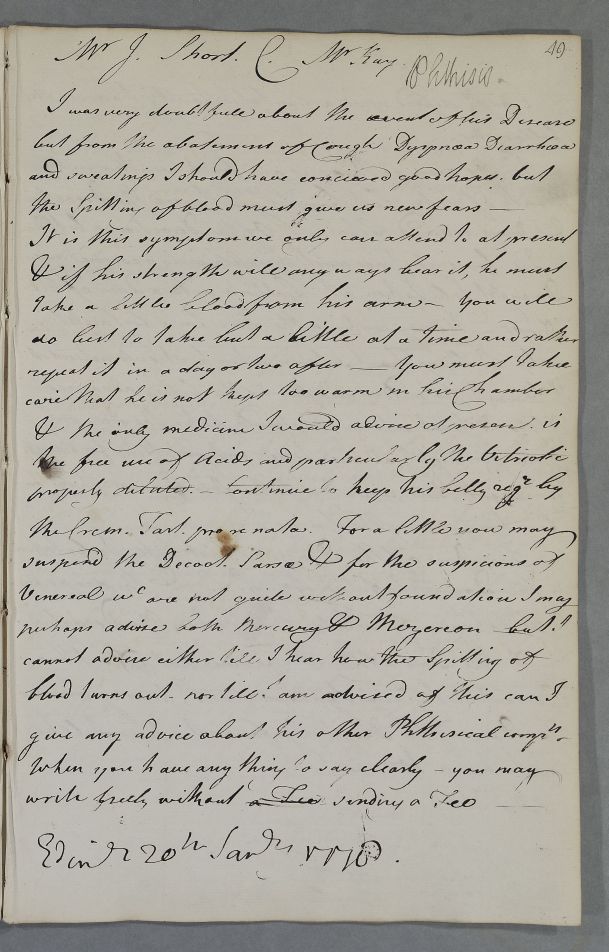 49
Mr J. Short. C. Mr Kay.
Phthisis.
I was very doubtfull about the event of his Disease
but from the abatement of Cough Dyspnœa Diarrhœa
and sweatings I should have conceived good hopes. but
the Spitting of blood must give us new fears —
It is this symptom we only can attend to at present
& if his strength will any ways bear it, he must
take a little blood from his arm — you will
do best to take but a little at a time and rather
repeat it in a day or two after — you must take
care that he is not kept too warm in his Chamber
& the only medicine I would advise at present is
the free use of Acids and particularly the Vitriolic
properly diluted. — Continue to keep his belly regr by
the Crem. Tart. pro re nata. For a little you may
suspend the Decoct. Sarsæ & for the suspicions of
Venereal wc are not quite without foundation I may
perhaps advise both Mercury & Mezereon but I
cannot advise either till I hear how the Spitting of
blood turns out. nor till I am advised of this can I
give any advice about his other Phthisical compts.
When you have any thing to say clearly — you may
write freely without a Fee sending a Fee —
Edinr 20th Janry